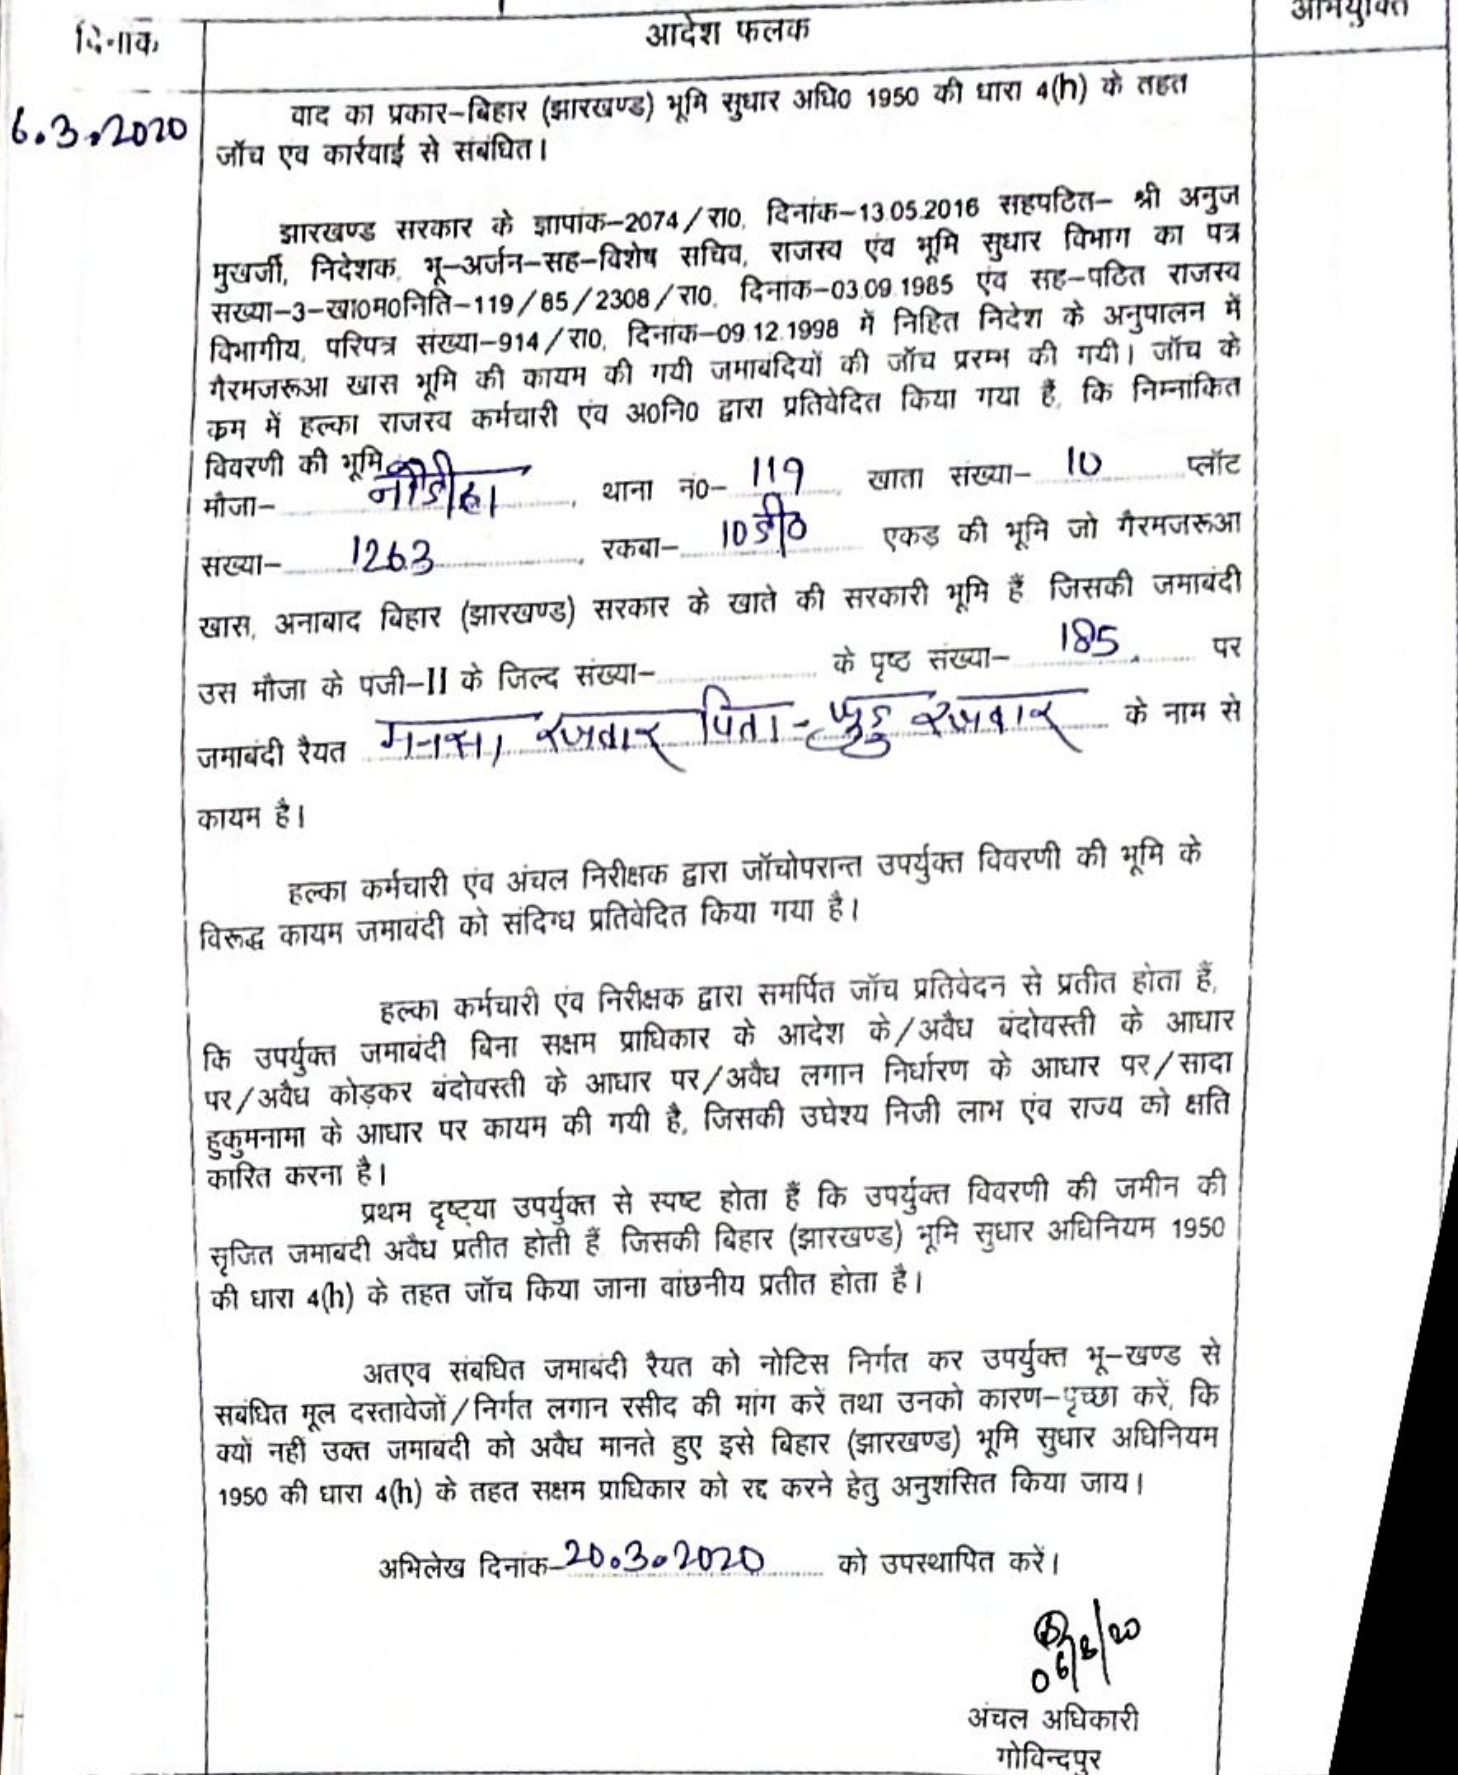 दिनांक
आदेश फलक
अभियुक्ति
6.3.2020
वाद का प्रकार–बिहार (झारखण्ड) भूमि सुधार अधि0 1950 की धारा 4(h) के तहत
जॉच एंव कार्रवाई से संबंधित।
झारखण्ड सरकार के ज्ञापांक–2074/रा0, दिनांक–13.05.2016 सहपटित– श्री अनुज
मुखर्जी, निदेशक, भू–अर्जन–सह–विशेष सचिव, राजस्व एंव भूमि सुधार विभाग का पत्र
सख्या–3–खा0म0निति–119/85/2308/रा0, दिनांक–03.09.1985 एंव सह–पठित राजस्व
विभागीय, परिपत्र संख्या–914/रा0, दिनांक–09.12.1998 में निहित निदेश के अनुपालन में
गैरमजरूआ खास भूमि की कायम की गयी जमाबंदियों की जॉच प्ररम्भ की गयी। जॉच के
क्रम में हल्का राजस्व कर्मचारी एंव अ0नि0 द्वारा प्रतिवेदित किया गया है, कि निम्नांकित
विवरणी की भूमि
मौजा– नौडीहा, थाना नं0– 119 खाता संख्या– 10 प्लॉट
संख्या– 1263, रकबा– 10डी0 एकड़ की भूमि जो गैरमजरूआ
खास, अनाबाद बिहार (झारखण्ड) सरकार के खाते की सरकारी भूमि हैं जिसकी जमाबंदी
उस मौजा के पंजी–II के जिल्द संख्या– के पृष्ठ संख्या– 185 पर
जमाबंदी रैयत मनसा रजवार पिता - रजवार के नाम से
कायम है।
हल्का कर्मचारी एंव अंचल निरीक्षक द्वारा जॉचोपरान्त उपर्युक्त विवरणी की भूमि के
विरूद्ध कायम जमाबंदी को संदिग्ध प्रतिवेदित किया गया है।
हल्का कर्मचारी एंव निरीक्षक द्वारा समर्पित जॉच प्रतिवेदन से प्रतीत होता हैं,
कि उपर्युक्त जमाबंदी बिना सक्षम प्राधिकार के आदेश के/अवैध बंदोवस्ती के आधार
पर/अवैध कोड़कर बंदोवस्ती के आधार पर/अवैध लगान निर्धारण के आधार पर/सादा
हुकुमनामा के आधार पर कायम की गयी है, जिसकी उघेश्य निजी लाभ एंव राज्य को क्षति
कारित करना है।
प्रथम दृष्टया उपर्युक्त से स्पष्ट होता हैं कि उपर्युक्त विवरणी की जमीन की
सृजित जमाबंदी अवैध प्रतीत होती हैं जिसकी बिहार (झारखण्ड) भूमि सुधार अधिनियम 1950
की धारा 4(h) के तहत जॉच किया जाना वांछनीय प्रतीत होता है।
अतएव संबंधित जमाबंदी रैयत को नोटिस निर्गत कर उपर्युक्त भू–खण्ड से
सबंधित मूल दस्तावेजों/निर्गत लगान रसीद की मांग करें तथा उनको कारण–पृच्छा करें, कि
क्यों नहीं उक्त जमाबंदी को अवैध मानते हुए इसे बिहार (झारखण्ड) भूमि सुधार अधिनियम
1950 की धारा 4(h) के तहत सक्षम प्राधिकार को रद्द करने हेतु अनुशंसित किया जाय।
अभिलेख दिनांक– 20.3.2020 को उपस्थापित करें।
अंचल अधिकारी
गोविन्दपुर